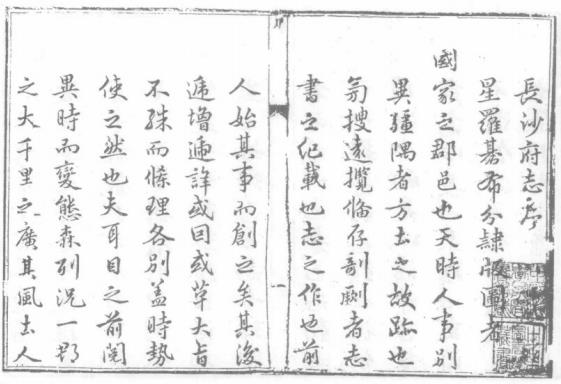 長沙府志序
星羅碁布分隸版圖者
國家之郡邑也天時人事別
異疆隅者方土之故跡也
旁搜遠攬俻存剞劂者志
書之紀載也志之作也前
人始其事而創之矣其後
遞增遞詳或因或革大旨
不殊而條理各別蓋時勢
使之然也夫耳目之前閱
異時而變態森列況一郡
之大千里之廣其風土人